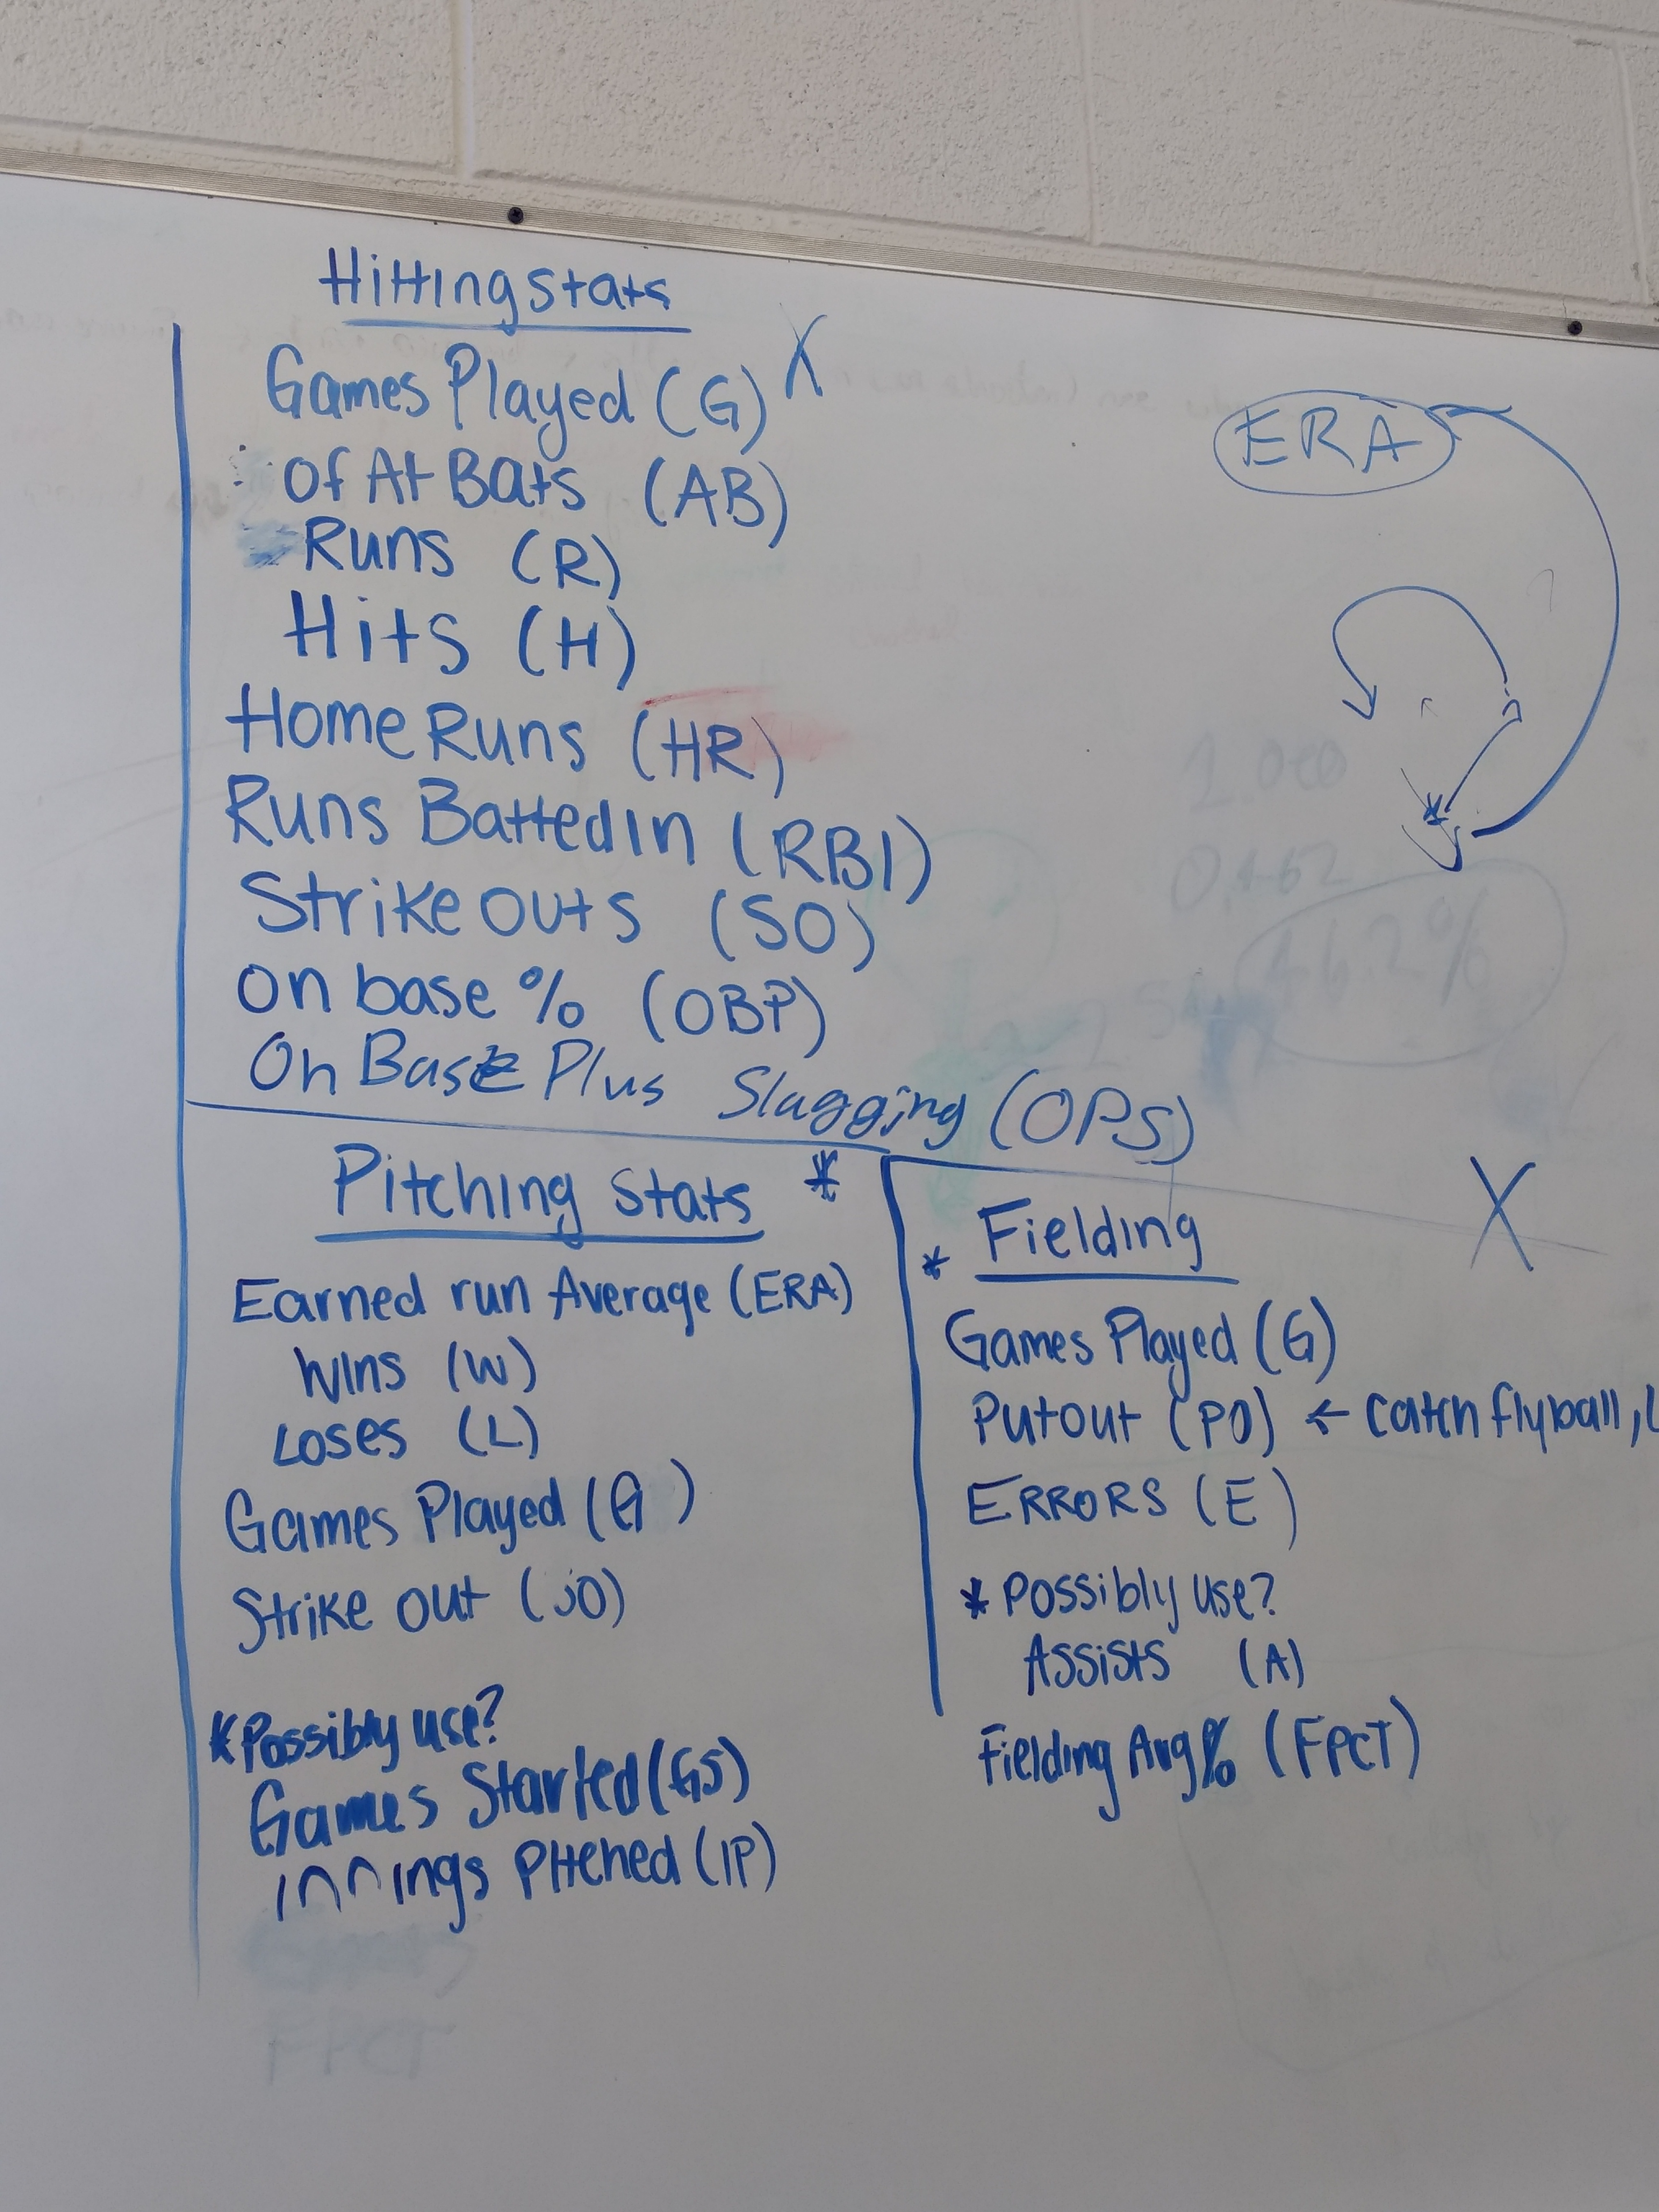 Hitting stats
Games Played (G) X
of At Bats (AB)
Runs (R)
Hits (H)
Home Runs (HR)
Runs Batted In (RBI)
Strike outs (SO)
on base % (OBP)
On Base Plus Slugging (OPS)
ERA
1.000
0.462
462%
Pitching Stats *
Earned run Average (ERA)
Wins (W)
Loses (L)
Games Played (G)
Strike out (SO)
*Possibly use?
Games Started (GS)
innings Pitched (IP)
X
* Fielding
Games Played (G)
Putout (PO) ← catch flyball,
ERRORS (E)
* Possibly use?
Assists (A)
Fielding Avg% (FPCT)